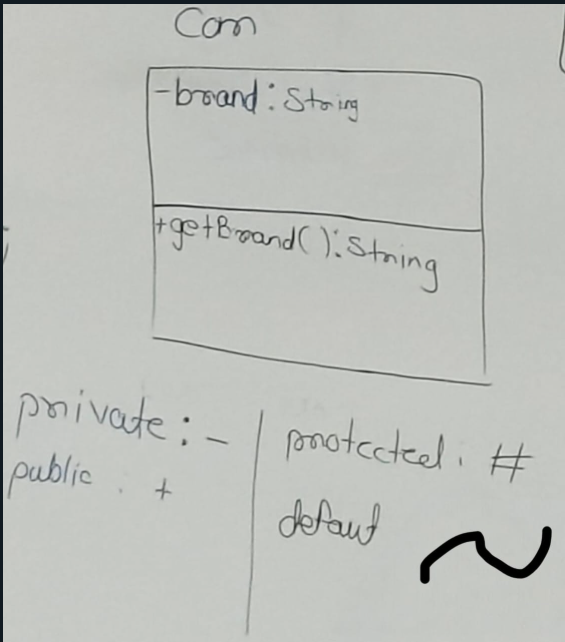 Car
-brand: String
+getBrand(): String
private: -
public. +
protected. #
defaut ~